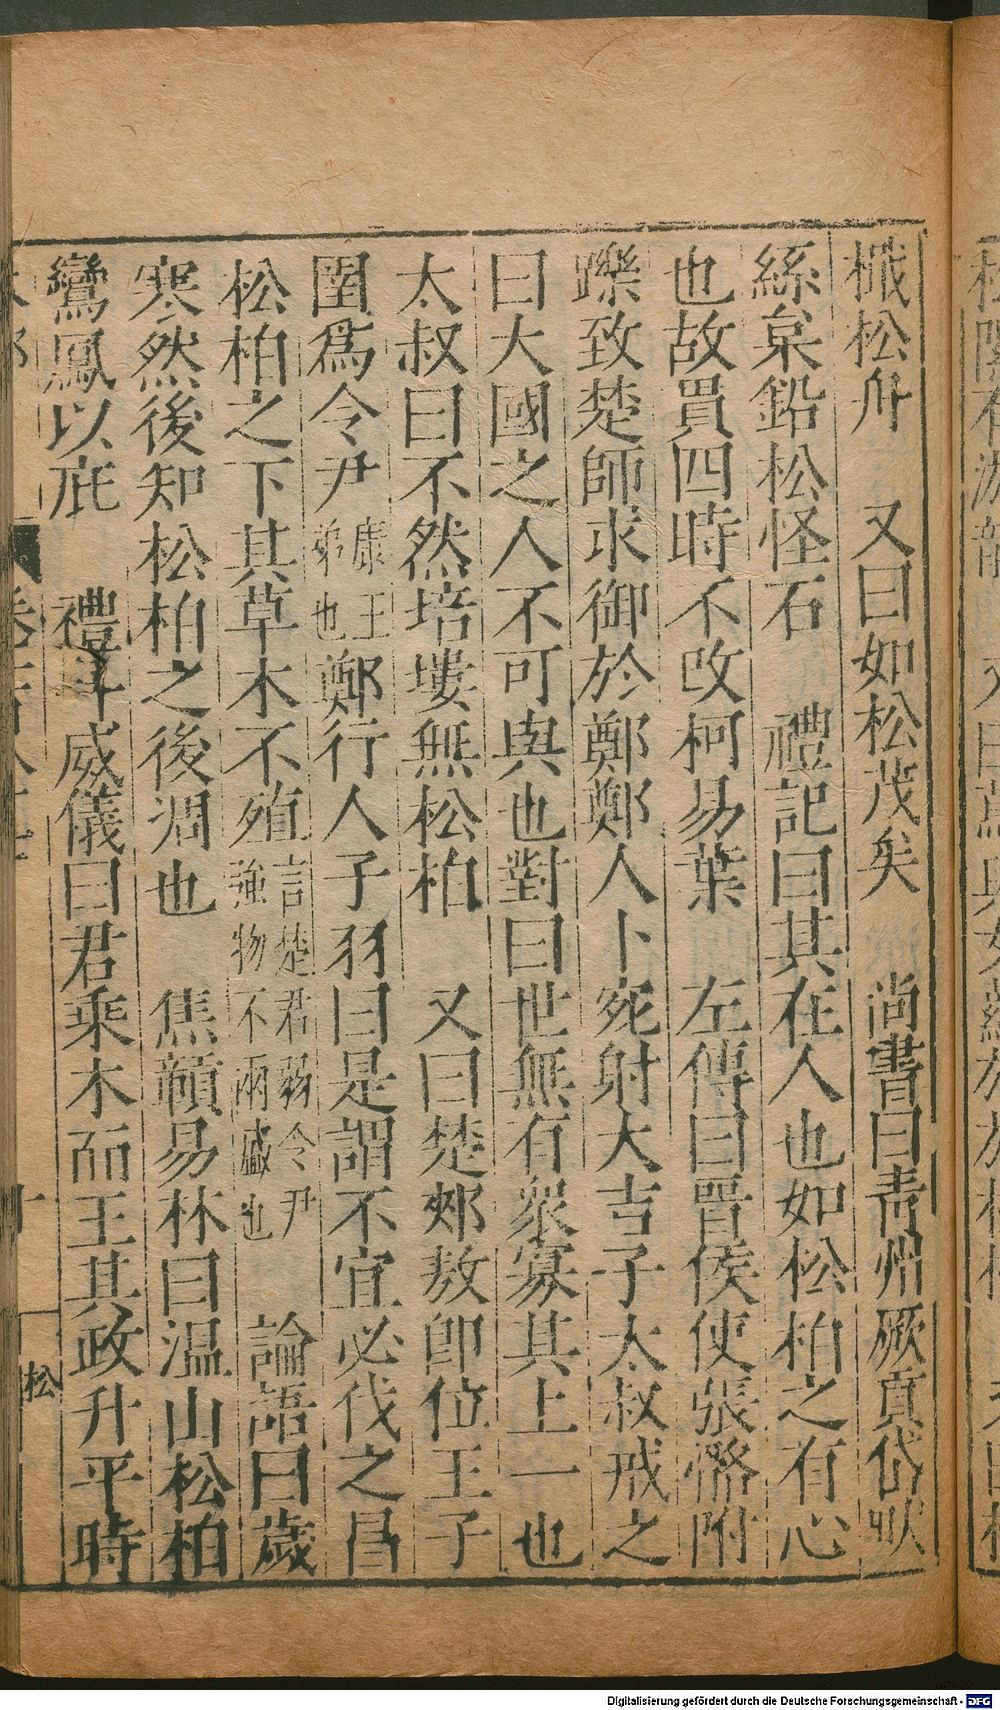 檝松舟　又曰如松茂矣　尚書曰青州厥貢岱畎
絲枲鉛松怪石　禮記曰其在人也如松栢之有心
也故貫四時不改柯易葉　左傳曰晋侯使張骼輔
躒致楚師求御於鄭鄭人卜宛射犬吉子太叔戒之
曰大國之人不可與也對曰世無有衆寡其上一也
太叔曰不然培塿無松栢　又曰楚郟敖卽位王子
圍爲令尹康王弟也鄭行人子羽曰是謂不宜必伐之昌
松栢之下其草木不殖言楚君弱令尹強物不兩盛也　論語曰歲
寒然後知松栢之後凋也　焦贑易林曰溫山松栢
鸞鳳以庇　禮斗威儀曰君乘木而王其政升平時
松
Digitalisierung gefördert durch die Deutsche Forschungsgemeinschaft - DFG